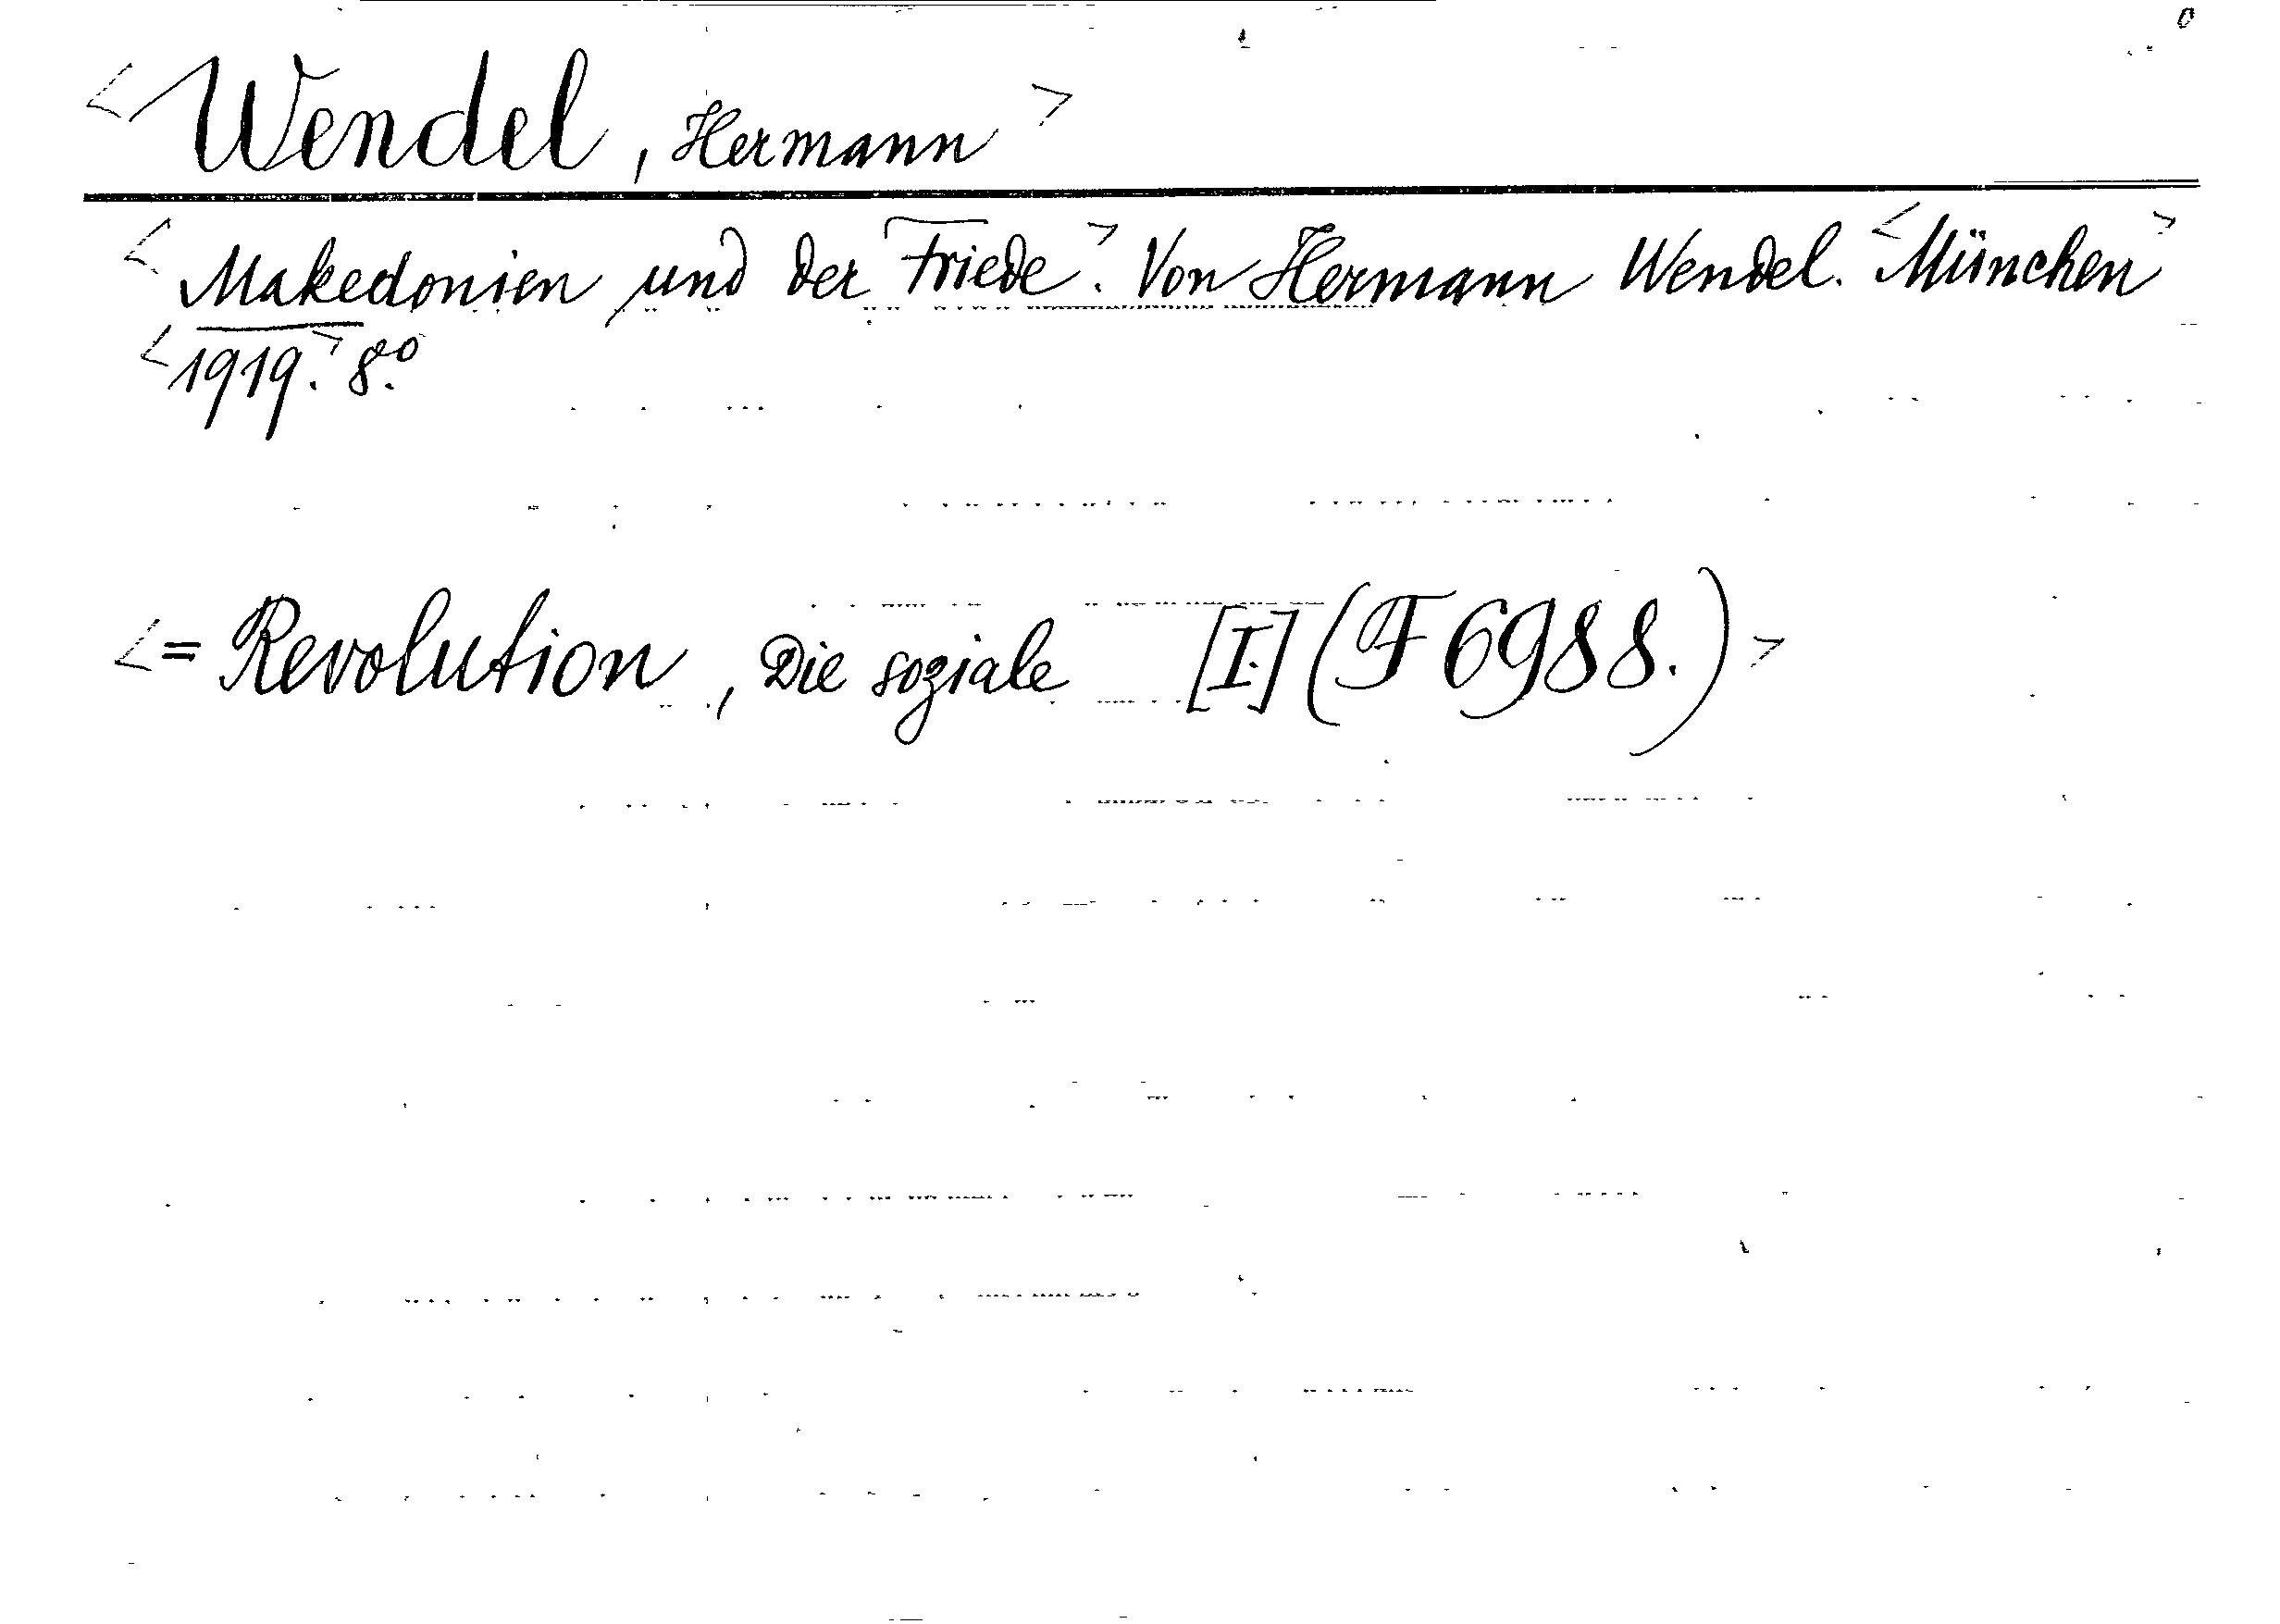 <Wendel, Hermann>
<Makedonien und der Friede>. Von Hermann Wendel. <München>
<1919>. 8.°
<= Revolution, Die soziale [I.] (F 6988.)>